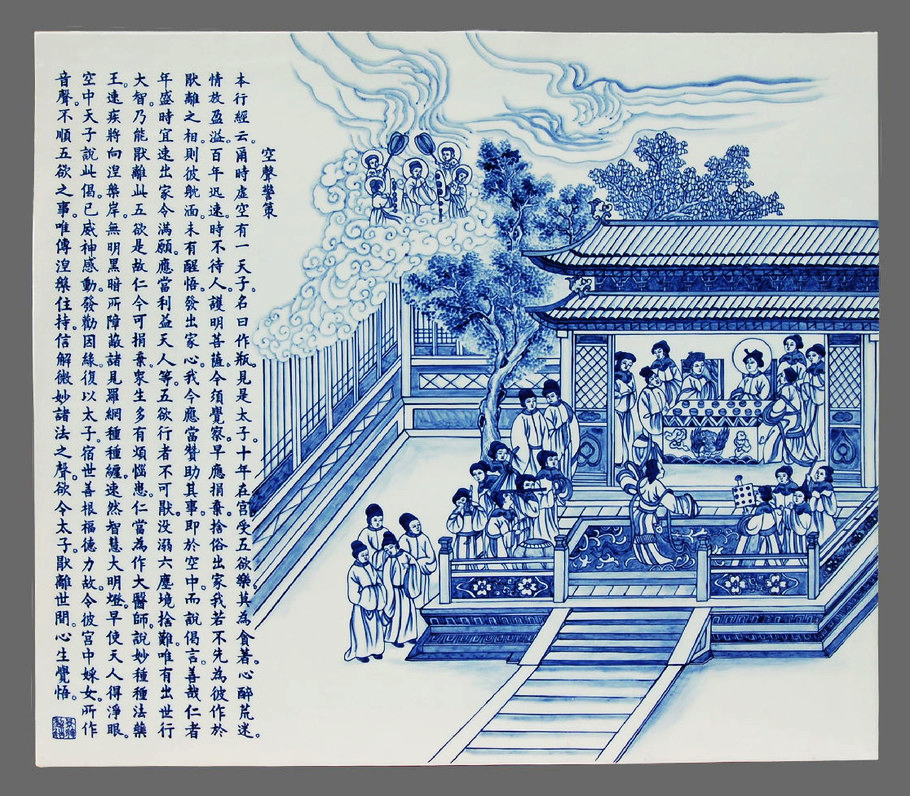 空聲警策
本行經云。爾時虛空有一天子。名曰作瓶。見是太子。十年在宮。受五欲樂。其為食著。心醉荒迷。
情放盈溢。百年迅速。時不待人。護明菩薩。今須覺察。早應捐棄。捨俗出家。我若不先為彼作於
猒離之相。則彼躭湎。未有醒悟。發出家心。我今應當贊助其事。即於空中而說偈言。善哉仁者
年盛時。宜速出家令滿願。應當利益天人等。五欲行者不可猒。沒溺六塵境捨難。唯有出世行
大智。乃能猒離此五欲。是故仁今可捐棄。眾生多有煩惱患。仁當為作大醫師。說妙種種法藥
王。速疾將向涅槃岸。無明黑暗所障蔽。諸見羅網種種纏。速然智慧大明燈。早使天人得淨眼。
空中天子說此偈。已威神感動。發勸因緣。復以太子宿世善根福德力故。令彼宮中婇女。所作
音聲。不順五欲之事。唯傳涅槃住持。信解微妙諸法之聲。欲令太子猒離世間。心生覺悟。